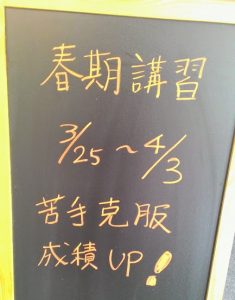 春期講習
3/25～4/3
苦手克服
成績UP!